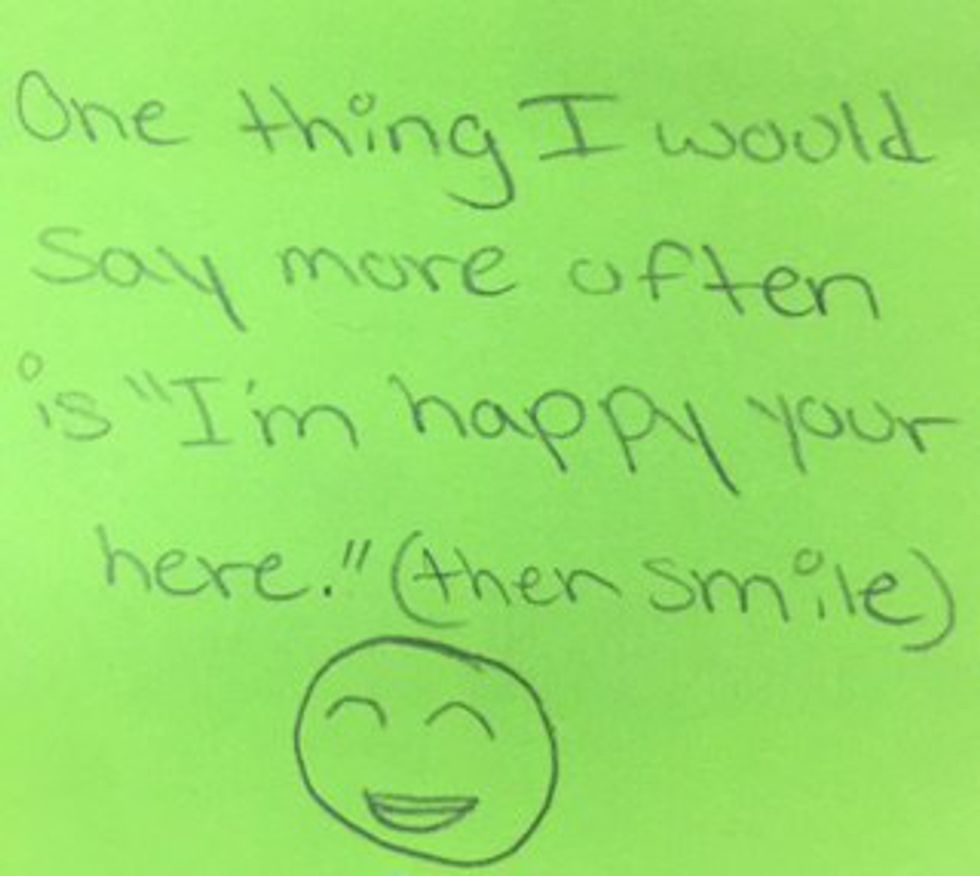 One thing I would
Say more often
is "I'm happy your
here." (then smile)